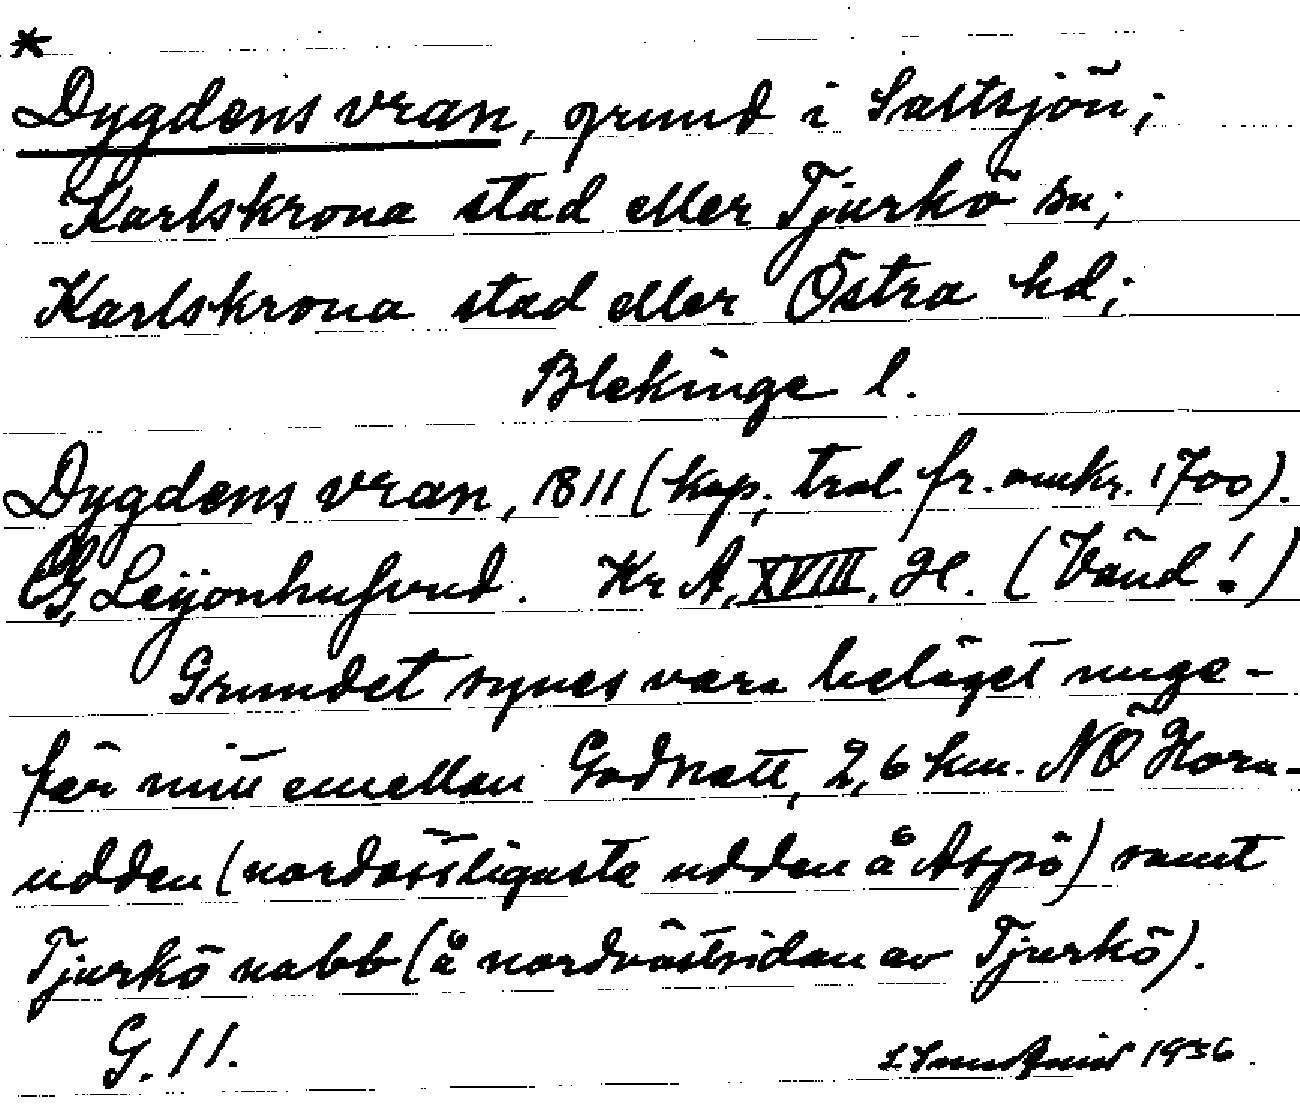 *
Dygdens vran, grund i Saltsjön;
Karlskrona stad eller Tjurkö sn;
Karlskrona stad eller Östra hd;
Blekinge l.
Dygdens vran, 1811 (kop. tral. fr. omkr. 1700).
CG, Leijonhufvud. Kr A, XVIII, H. (Vänd!)
Grundet synes vara beläget unge-
fär mitt emellan Godnatt, 2,6 km. NÖ Horn-
udden (nordöstligaste udden å Aspö) samt
Tjurkö nabb (å nordvästsidan av Tjurkö).
G. 11. 1936.